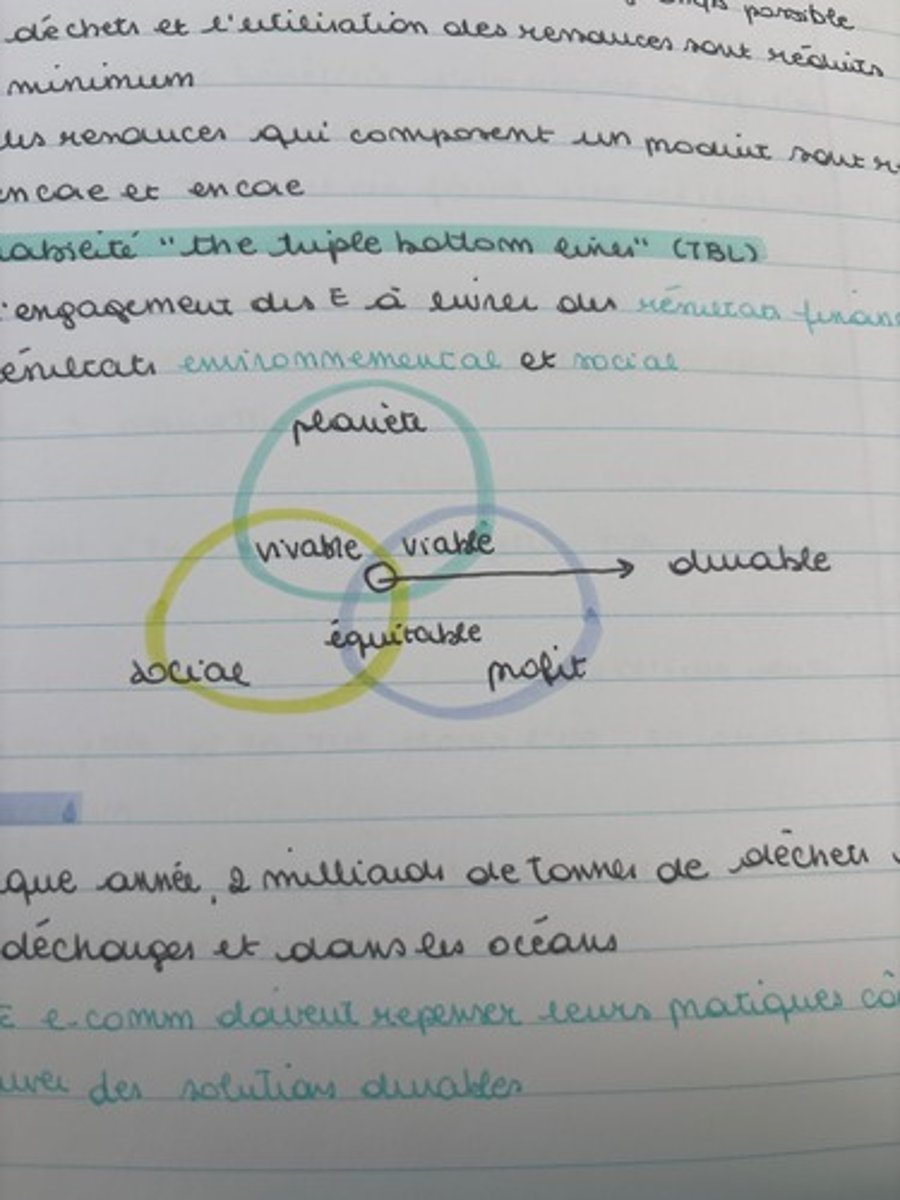 possible
déchets et l'utilisation des ressources sont réduits
minimum
les ressources qui composent un produit sont r
encore et encore
"the triple bottom lines" (TBL)
l'engagement des E à livrer des résultats finan
résultats environnemental et social
planète
vivable viable
durable
équitable
social profit
que année, 2 milliards de tonnes de déchets
décharges et dans les océans
E e-comm doivent repenser leurs pratiques cô
des solutions durables